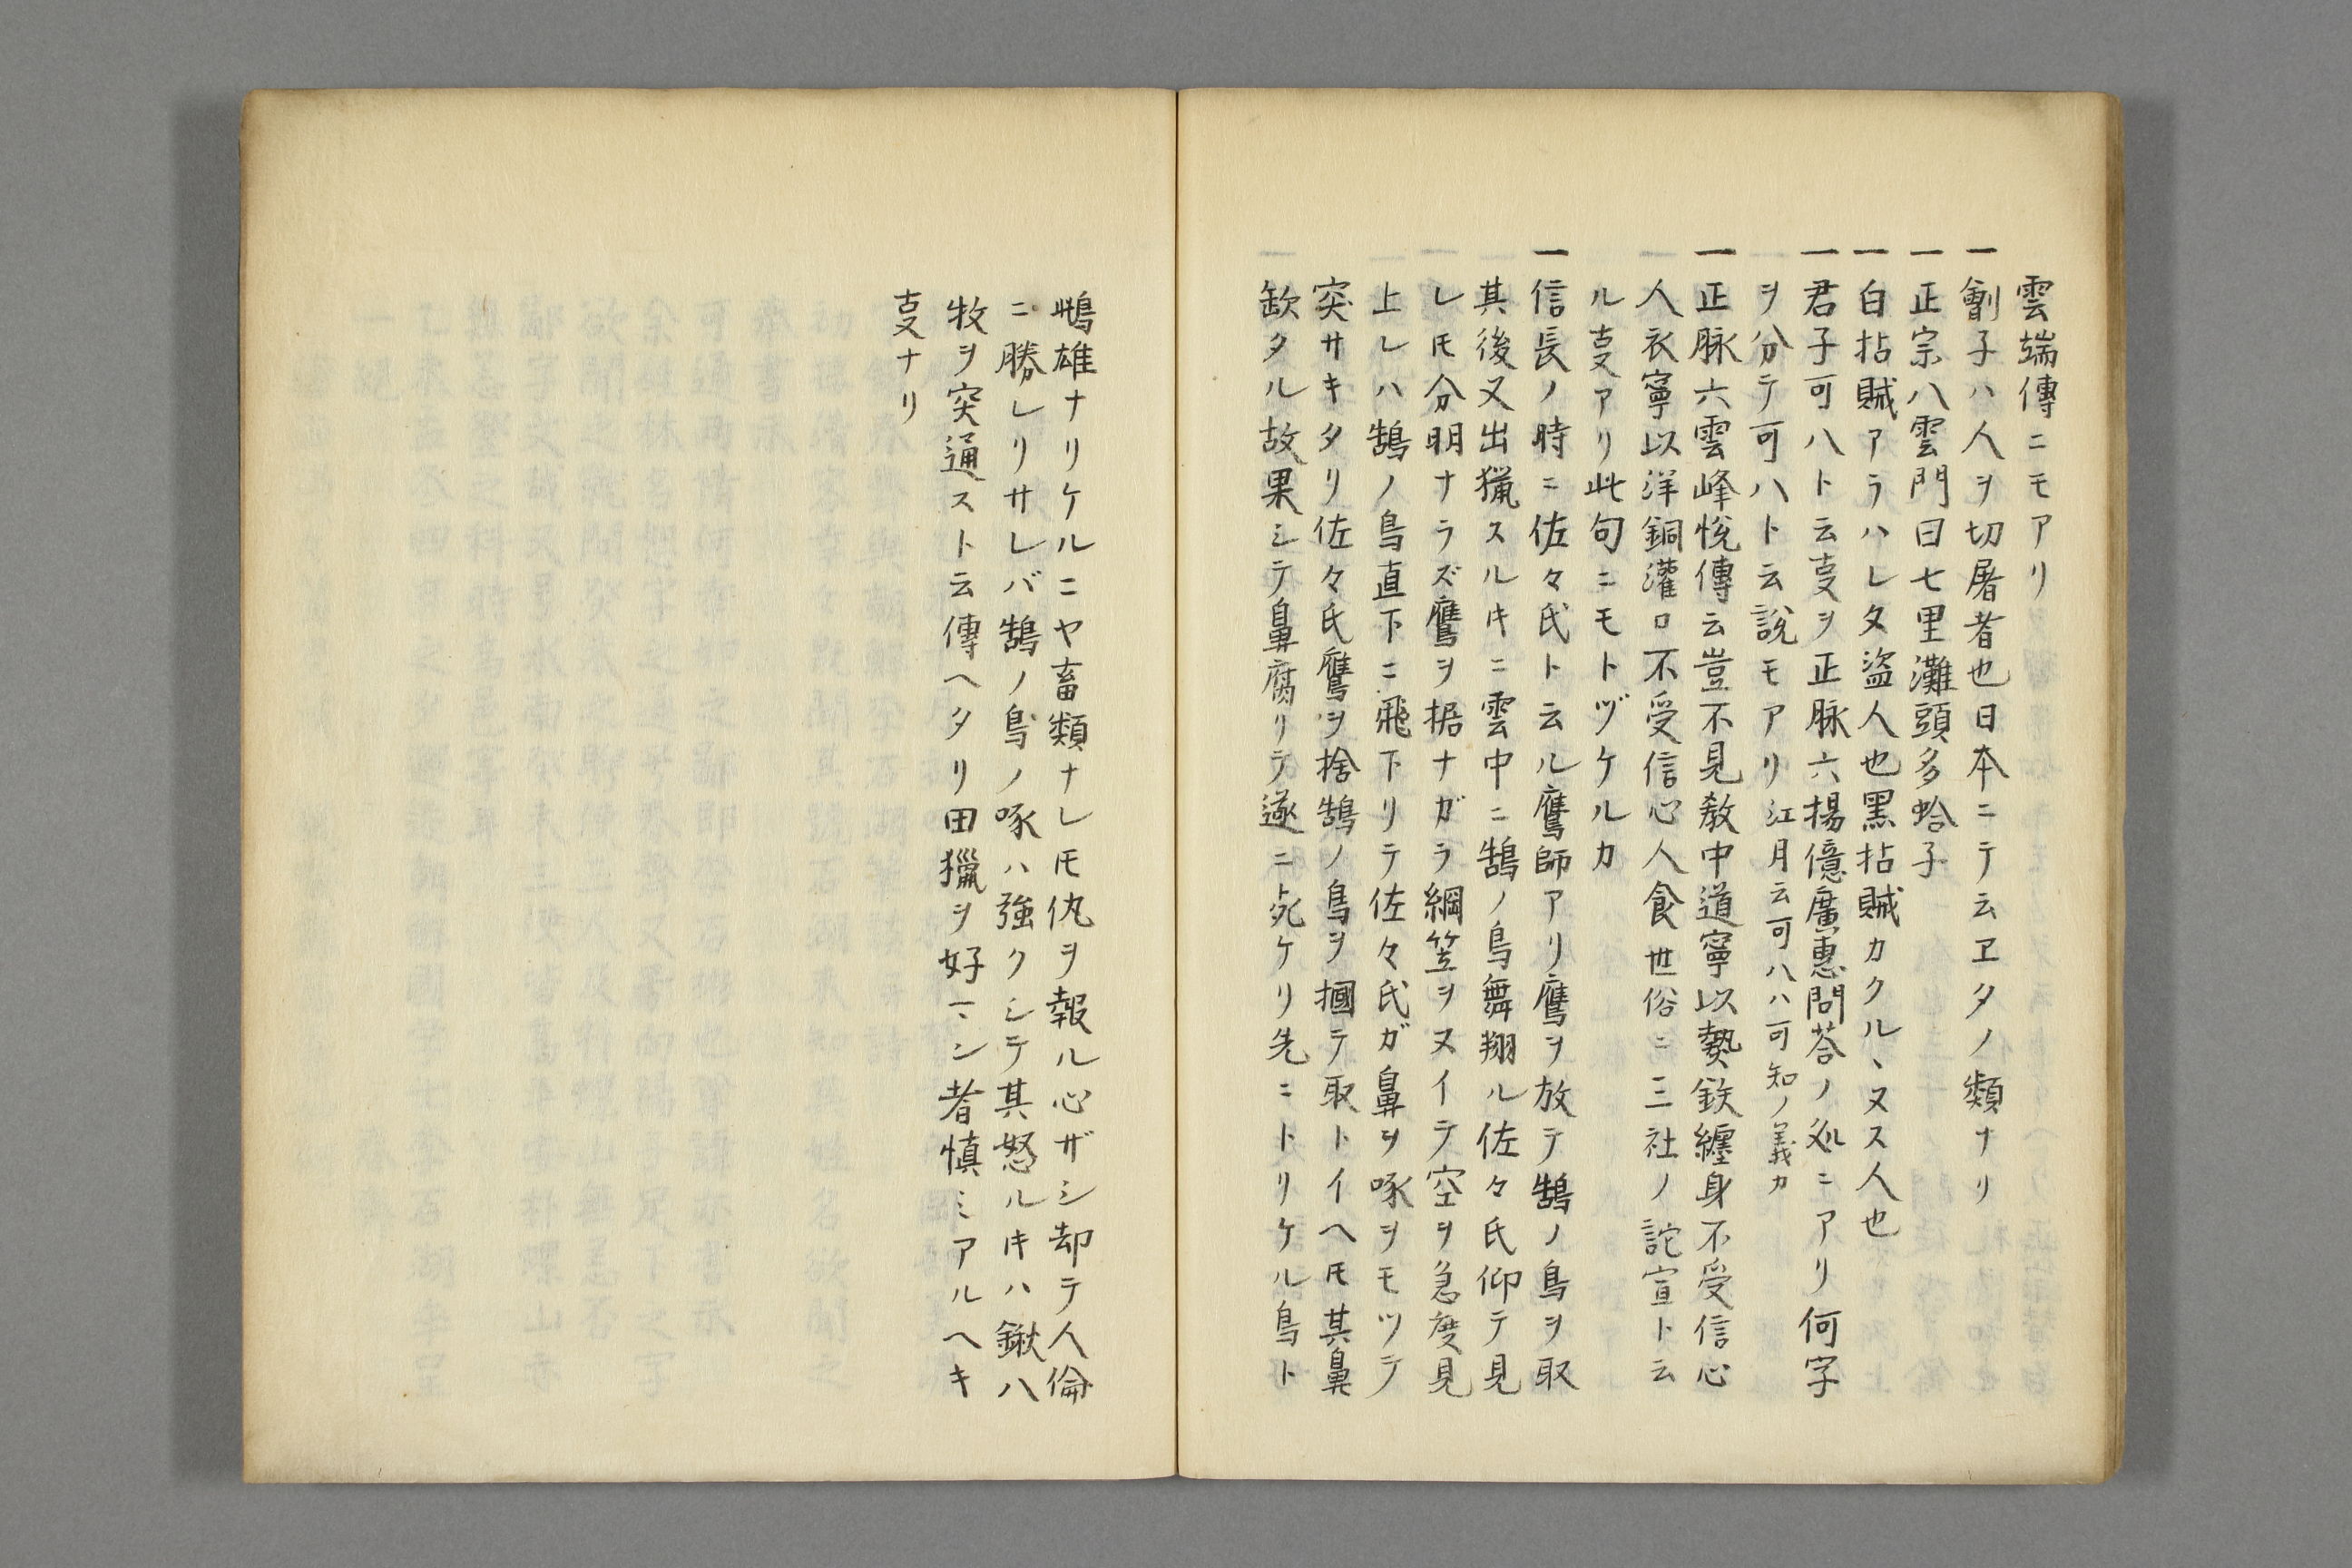 雲端傳ニモアリ
一劊子ハ人ヲ切屠者也日本ニテ云ヱタノ類ナリ
一正宗八雲門曰七里灘頭多蛤子
一白拈賊アラハレタ盗人也黒拈賊カクル、ヌス人也
一君子可八ト云叓ヲ正脉六揚億廣惠問荅ノ処ニアリ何字
ヲ分テ可ハト云説モアリ江月云可八ハ可知ノ義カ
一正脉六雲峰悦傳云豈不見教中道寧以𤍠鉄纏身不受信心
人衣寧以洋銅灌口不受信心人食世俗ニ三社ノ詫宣ト云
ル叓アリ此句ニモトヅケルカ
一信長ノ時ニ佐々氏ト云ル鷹師アリ鷹ヲ放テ鵠ノ鳥ヲ取
其後又出猟スルキニ雲中ニ鵠ノ鳥舞翔ル佐々氏仰テ見
レ𪜈分明ナラズ鷹ヲ据ナガラ綱笠ヲヌイテ空ヲ急度見
上レハ鵠ノ鳥直下ニ飛下リテ佐々氏ガ鼻ヲ啄ヲモツテ
突サキタリ佐々氏鷹ヲ捨鵠ノ鳥ヲ摑テ取トイヘ𪜈其鼻
缺タル故果シテ鼻腐リテ遂ニ死ケリ先ニトリケル鳥ト
鴘雄ナリケルニヤ畜類ナレ𪜈仇ヲ報ル心ザシ却テ人倫
ニ勝レリサレバ鵠ノ鳥ノ啄ハ強クシテ其怒ルキハ鍬八
牧ヲ突通スト云傳ヘタリ田獵ヲ好マン者慎ミアルヘキ
叓ナリ